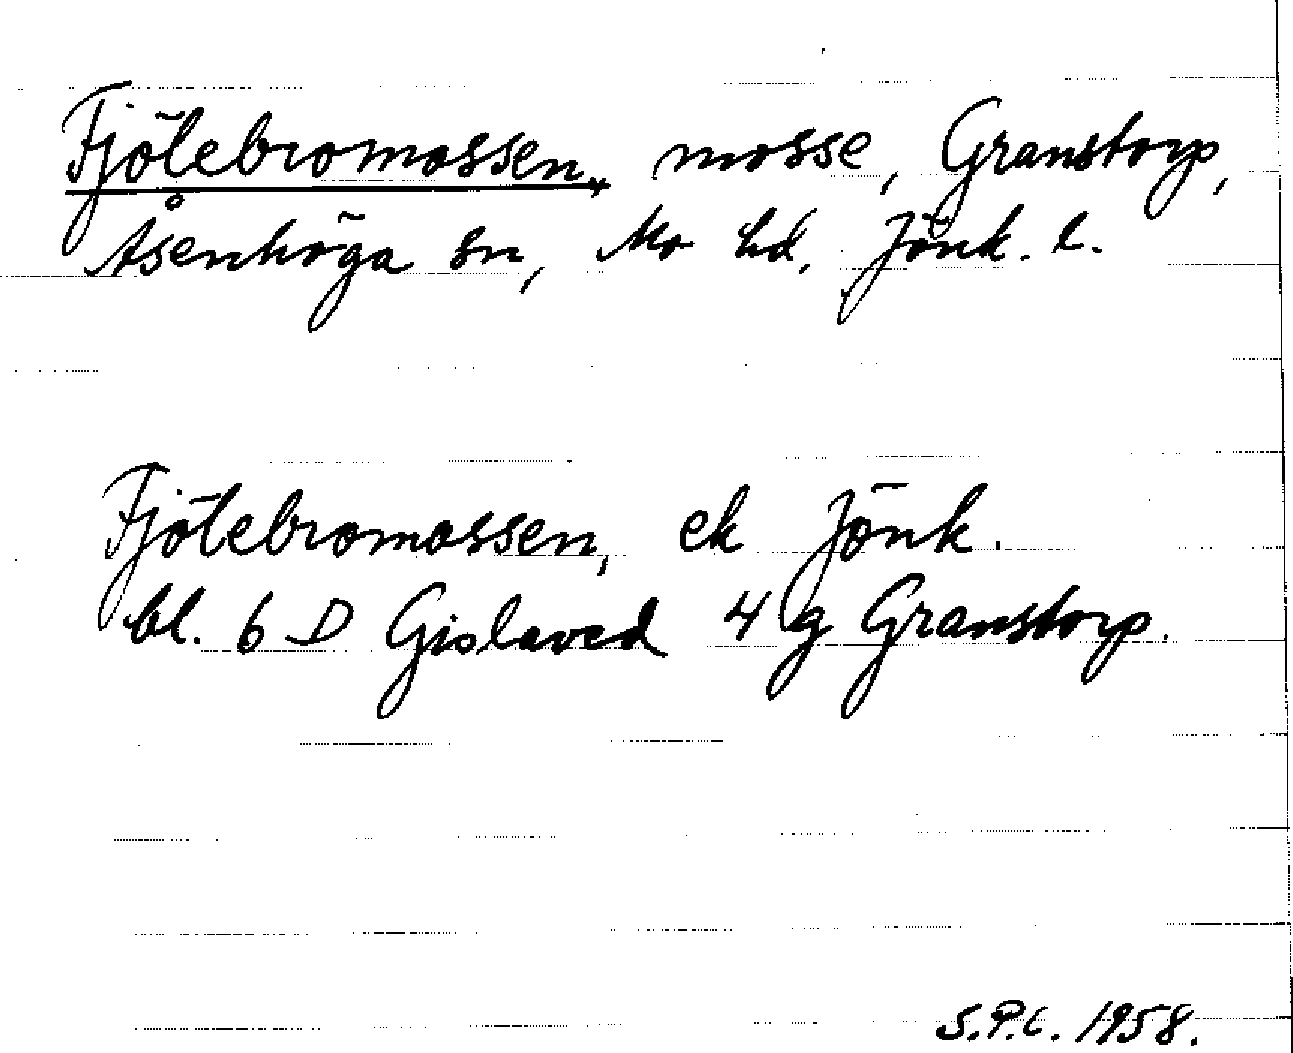 Fjölebromossen, mosse, Granstorp,
Åsenhöga sn, Mo hd, Jönk. l.
Fjölebromossen, ek Jönk.
bl. 6 D Gislaved 4 g Granstorp.
S.P.C. 1958.